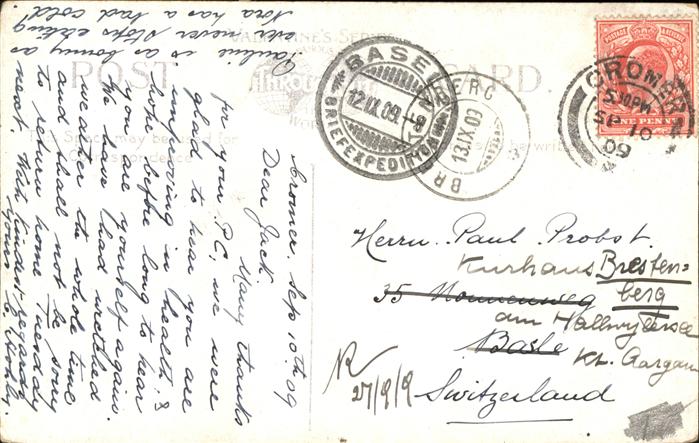 VALENTINE'S SERIES
POST CARD.
Cromer. Sep 10th 09
Dear Jack.
Many thanks
for your P.C, we were
glad to hear you are
improving in health &
hope before long to hear
you are yourself again.
We have had wretched
weather the whole time
and shall not be sorry
to return home Tuesday
next. With kindest regards
Yours
Pauline is as bonny as
ever never stops eating
Nora has a bad cold.
BASEL
12.IX.09.
BRIEFEXPEDITION
13.IX.09
CROMER
5.30PM
SP 10
09
POSTAGE & REVENUE
ONE PENNY
Herrn. Paul. Probst.
Kurhaus Bresten=
berg
35 Nonnenweg
am Hallwylersee
Basle
Kt. Aargau
Switzerland
27/9/9